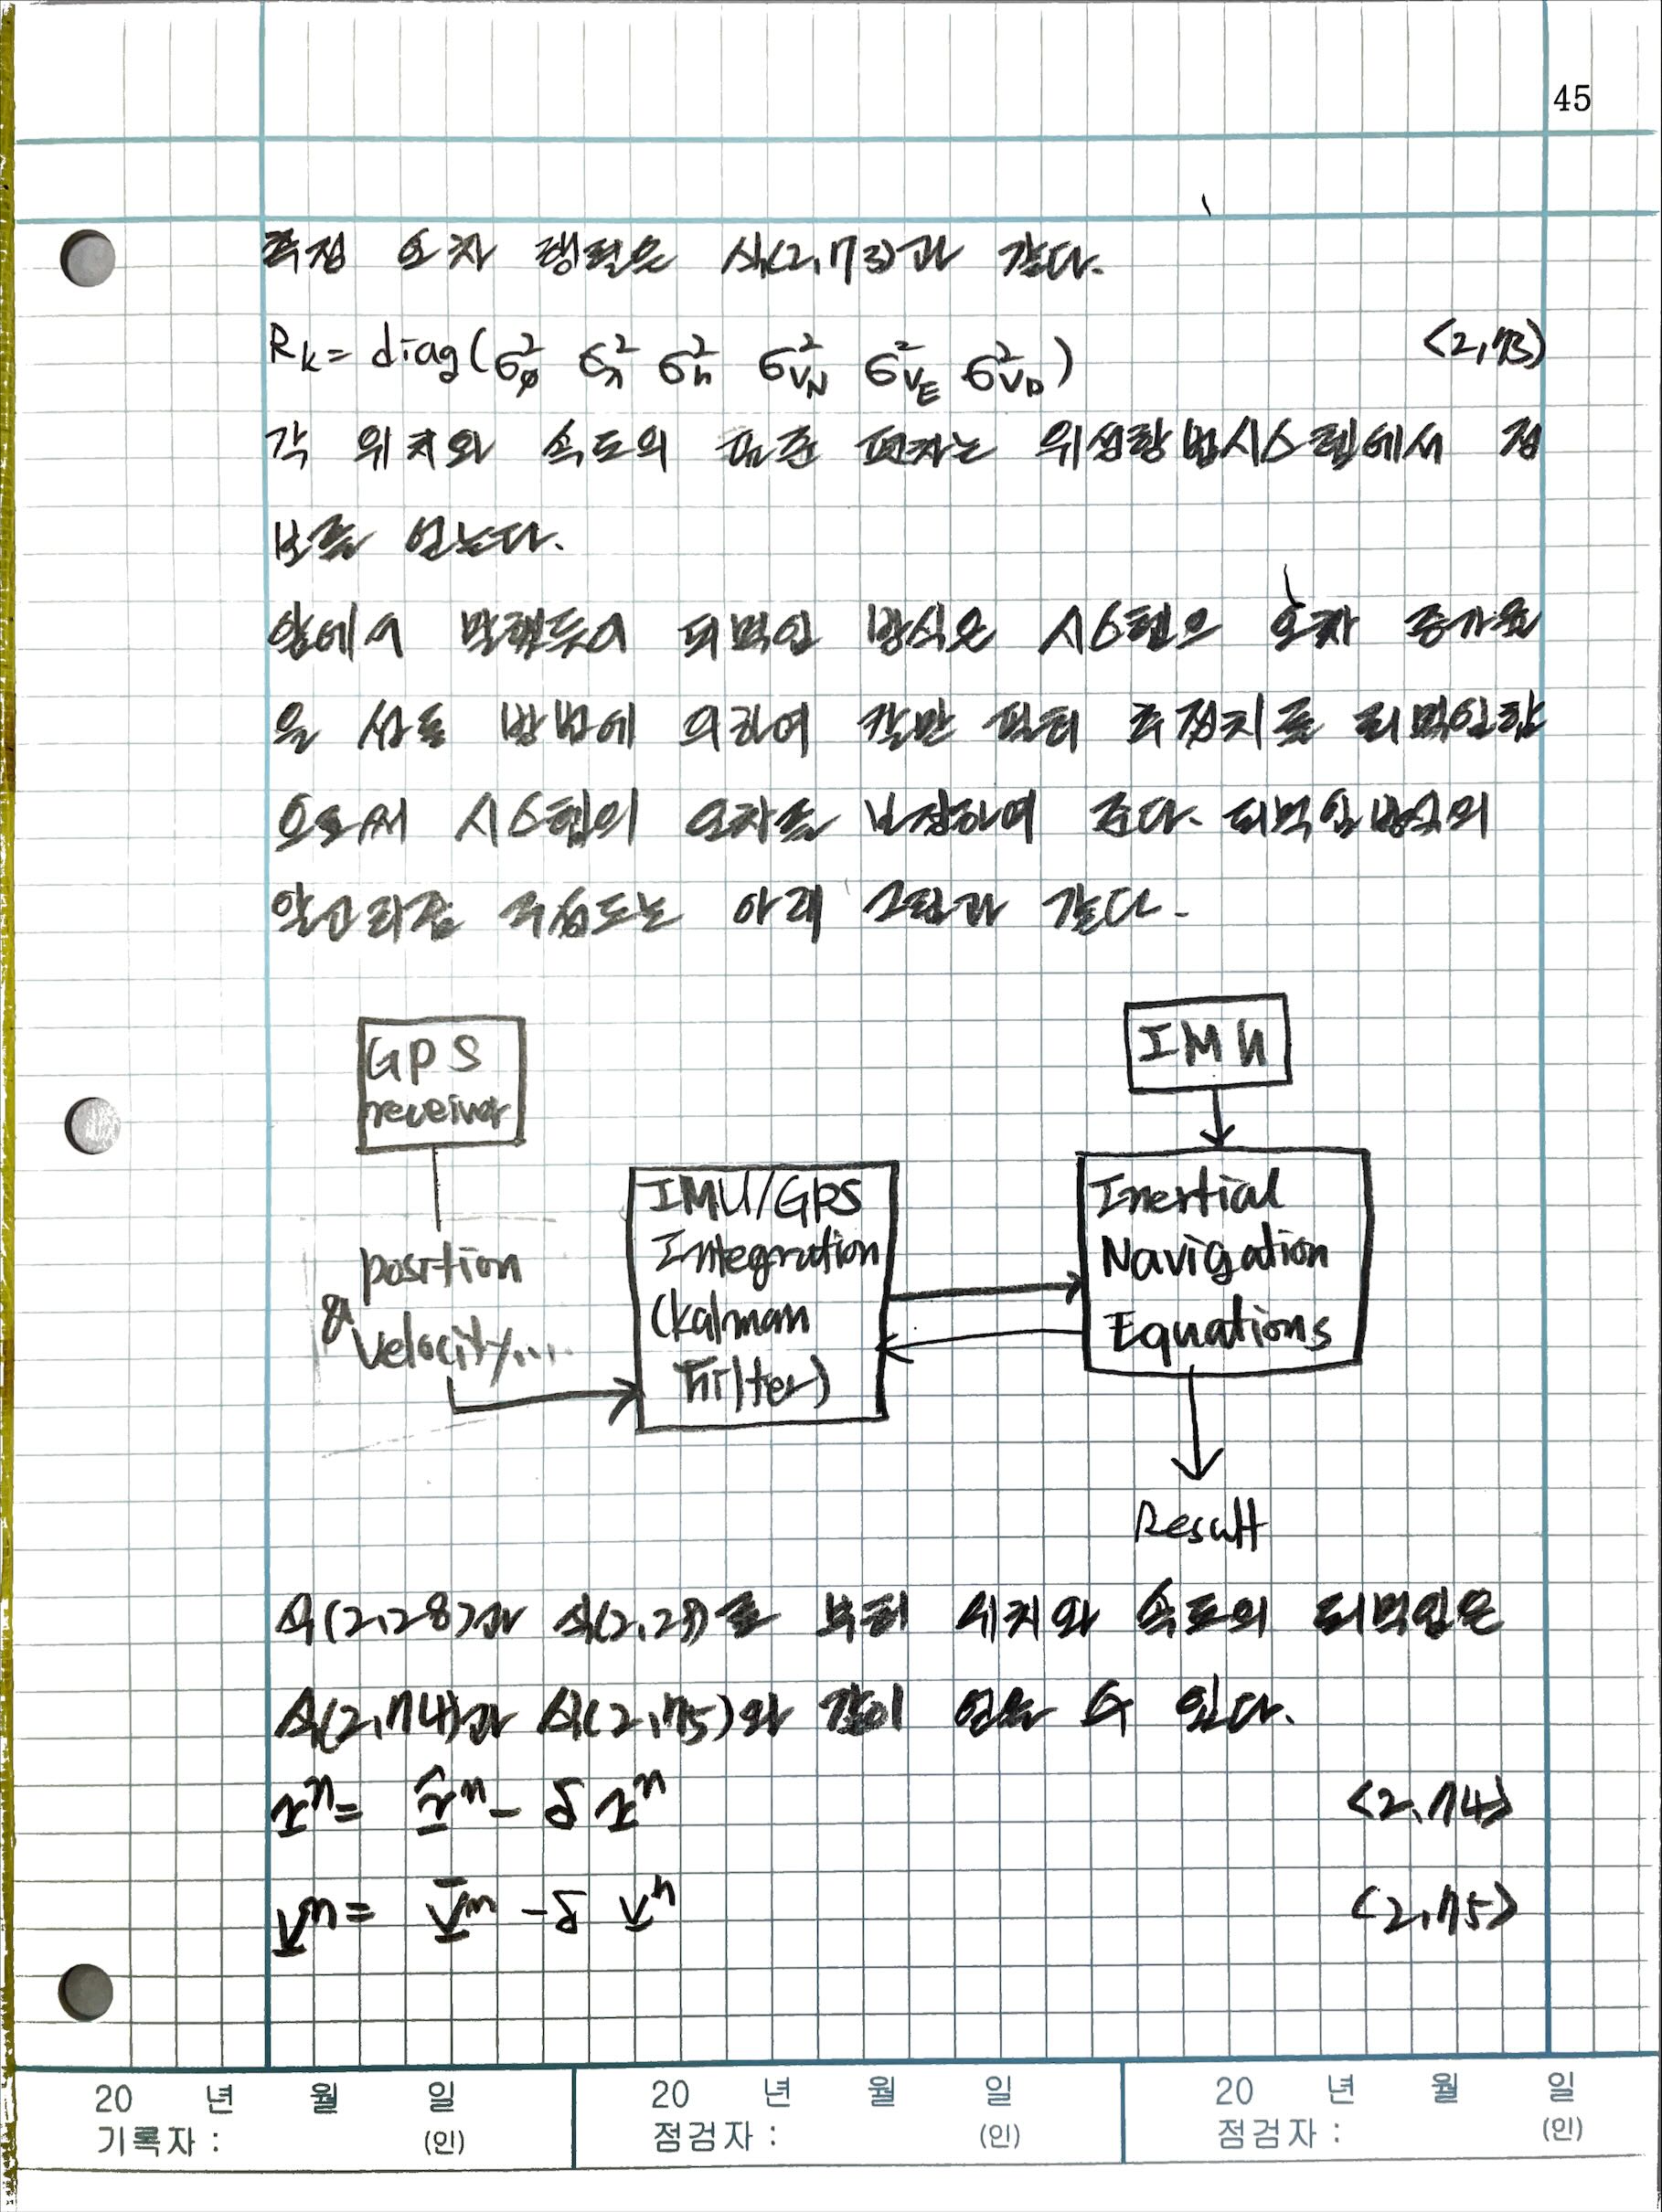 45
측정 오차 행렬은 식(2,73)과 같다.
R_k = diag(σ_φ^2 σ_λ^2 σ_h^2 σ_{V_N}^2 σ_{V_E}^2 σ_{V_D}^2) <2,73)
각 위치와 속도의 표준 편차는 위성항법시스템에서 정
보를 얻는다.
앞에서 말했듯이 되먹임 방식은 시스템의 오차 증가율
을 상쇄 방법에 의하여 칼만 필터 추정치를 되먹임함
으로써 시스템의 오차를 보정하여 준다. 되먹임방식의
알고리즘 구성도는 아래 그림과 같다.
GPS
receiver
IMU
position
& velocity...
IMU/GPS
Integration
(Kalman
Filter)
Inertial
Navigation
Equations
Result
식(2,28)과 식(2,29)로 부터 위치와 속도의 되먹임은
식(2,74)과 식(2,75)와 같이 얻을 수 있다.
r^n = r̂^n - δ r^n <2,74>
v^n = v̄^n - δ v^n <2,75>
20 년 월 일 20 년 월 일 20 년 월 일
기록자 : (인) 점검자 : (인) 점검자 : (인)